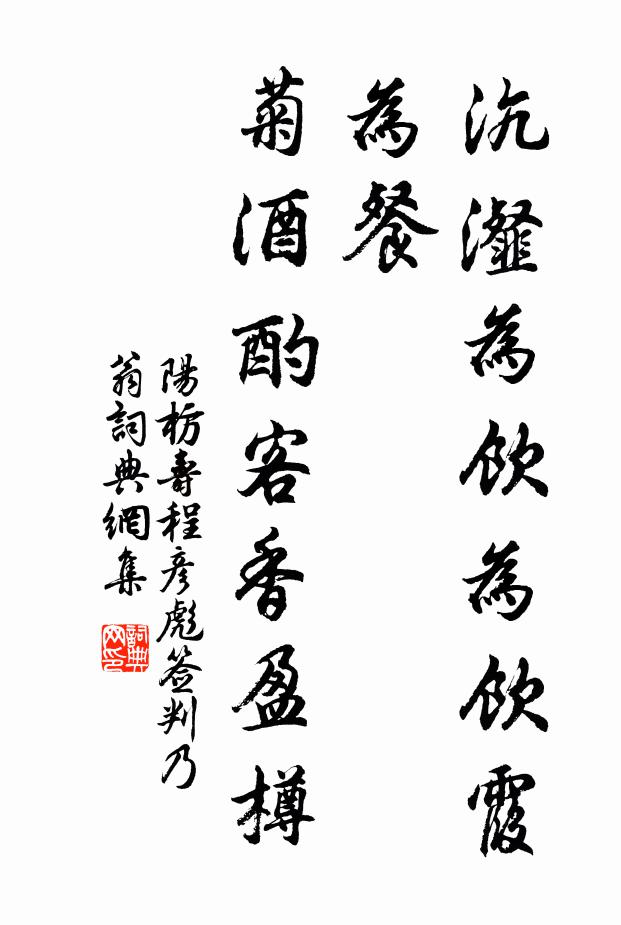 沆瀣為飲為飲霞
為餐
菊酒酌客香盈樽
陽枋壽程彥彪簽判乃
翁詞典網集
詞典
网印